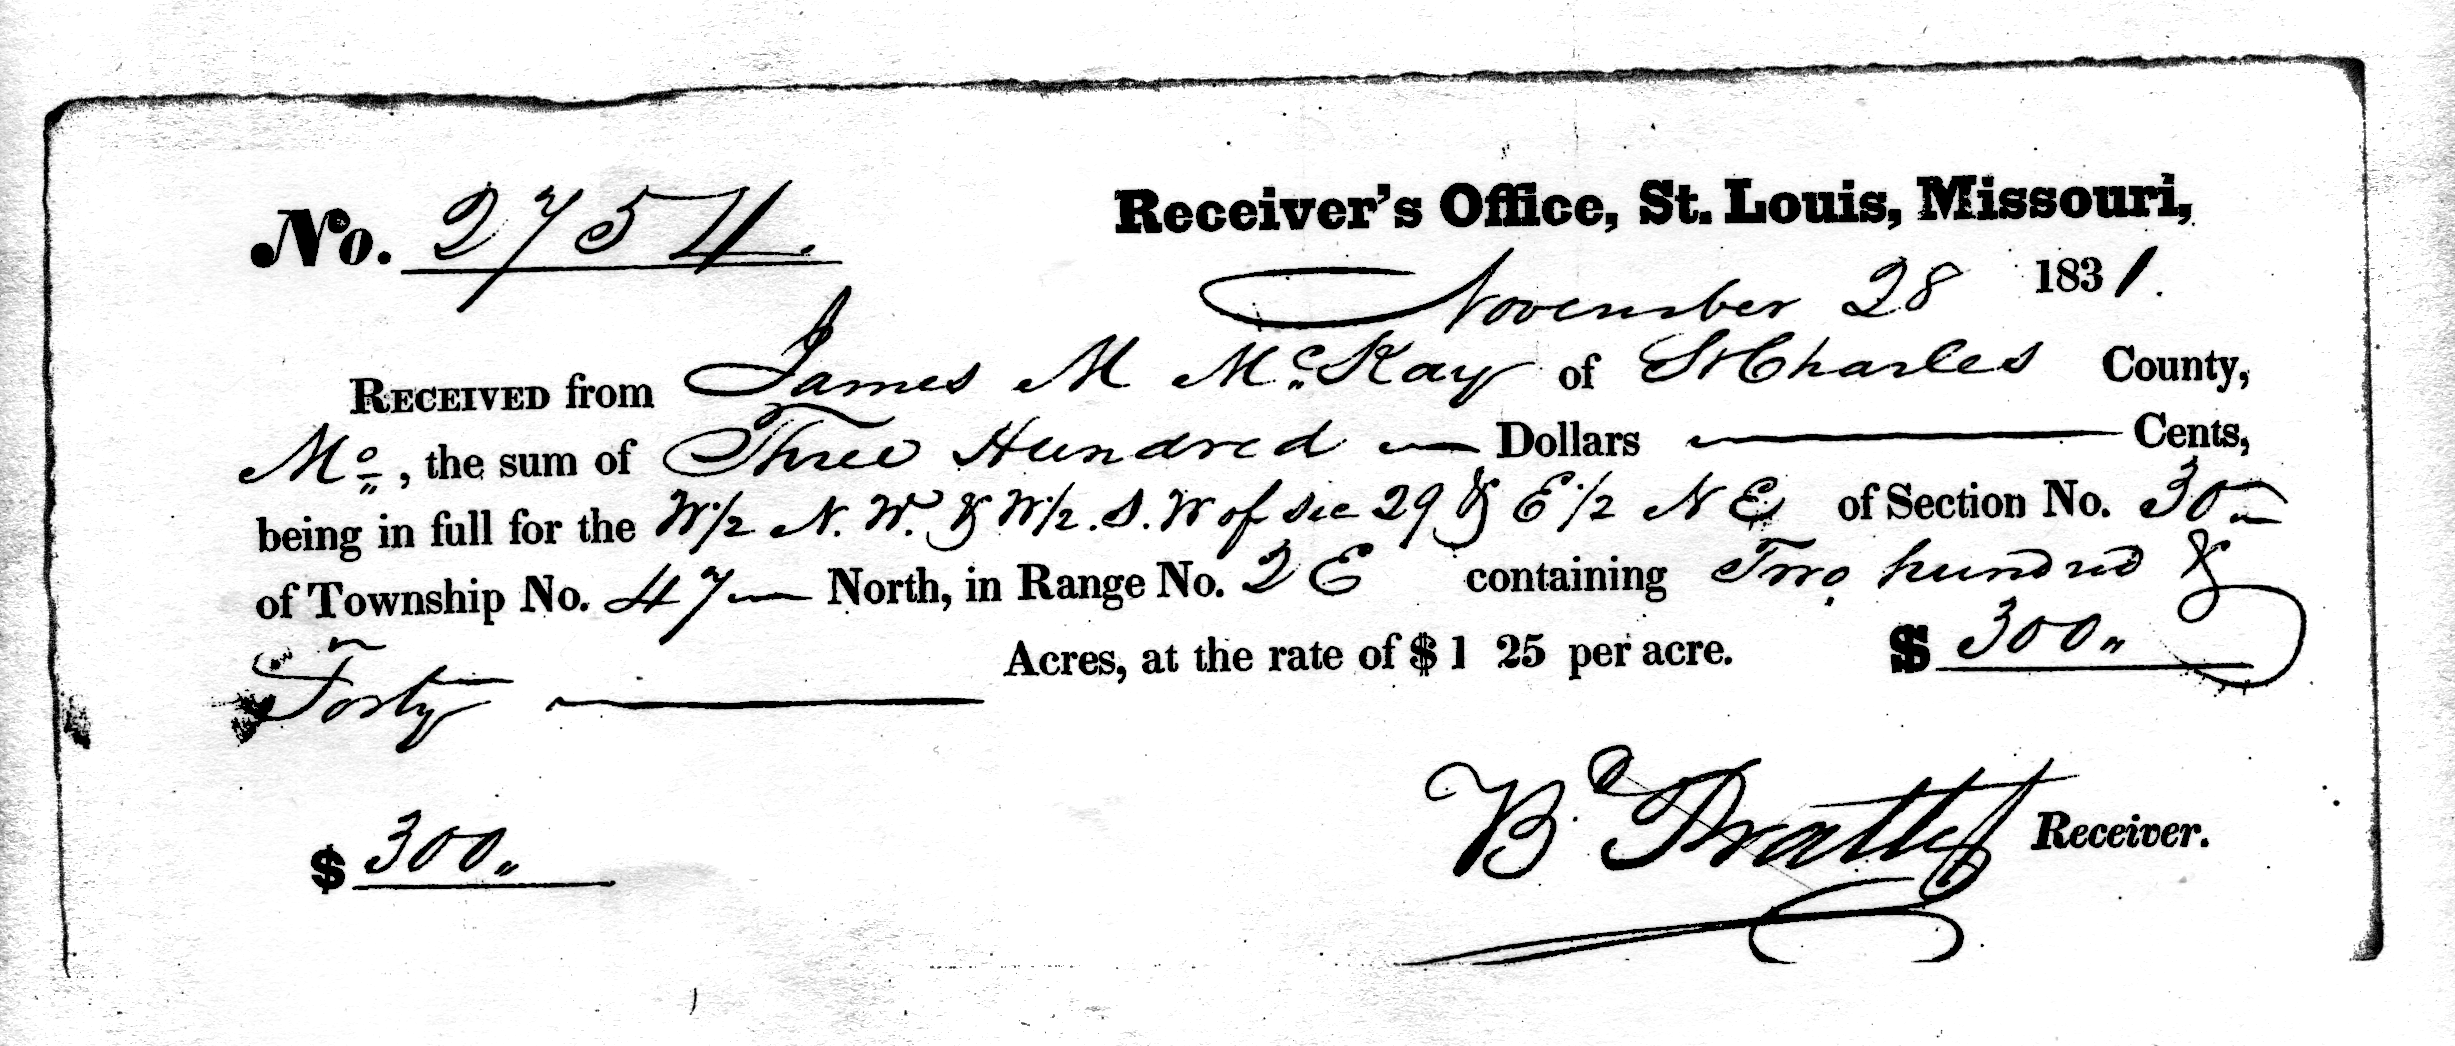 No. 2754.
Receiver's Office, St. Louis, Missouri,
November 28 1831.
RECEIVED from James M McKay of St Charles County,
Mo, the sum of Three Hundred — Dollars — Cents,
being in full for the W 1/2 N. W. & W 1/2. S. W of Sec 29 & E 1/2 N E of Section No. 30
of Township No. 47 North, in Range No. 2 E containing Two hundred &
Forty — Acres, at the rate of $ 1 25 per acre. $ 300"
$ 300"
B Pratte Receiver.